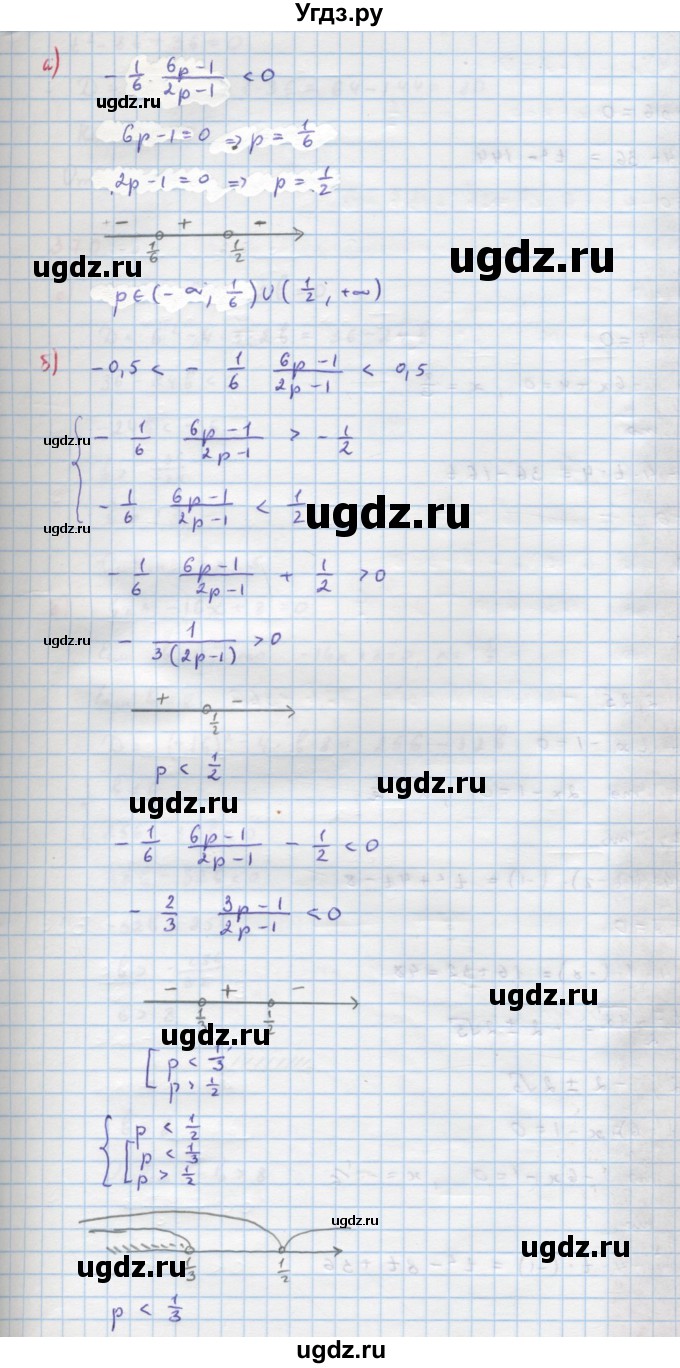 Угдз.ру
а) - 1/6 (6p-1)/(2p-1) < 0
ugdz.ru
6p-1=0 => p = 1/6
2p-1=0 => p = 1/2
- + -
ugdz.ru
1/6 1/2
ugdz.ru
p∈(-∞; 1/6)∪(1/2; +∞)
б) -0,5 < - 1/6 (6p-1)/(2p-1) < 0,5
ugdz.ru
{ - 1/6 (6p-1)/(2p-1) > - 1/2
- 1/6 (6p-1)/(2p-1) < 1/2
ugdz.ru
ugdz.ru
- 1/6 (6p-1)/(2p-1) + 1/2 > 0
ugdz.ru
- 1/(3(2p-1)) > 0
+ -
1/2
p < 1/2
ugdz.ru
ugdz.ru
- 1/6 (6p-1)/(2p-1) - 1/2 < 0
- 2/3 (3p-1)/(2p-1) < 0
- + -
ugdz.ru
1/3 1/2
ugdz.ru
[ p < 1/3
p > 1/2
{ p < 1/2
[ p < 1/3
p > 1/2
ugdz.ru
ugdz.ru
1/3 1/2
ugdz.ru
p < 1/3
ugdz.ru